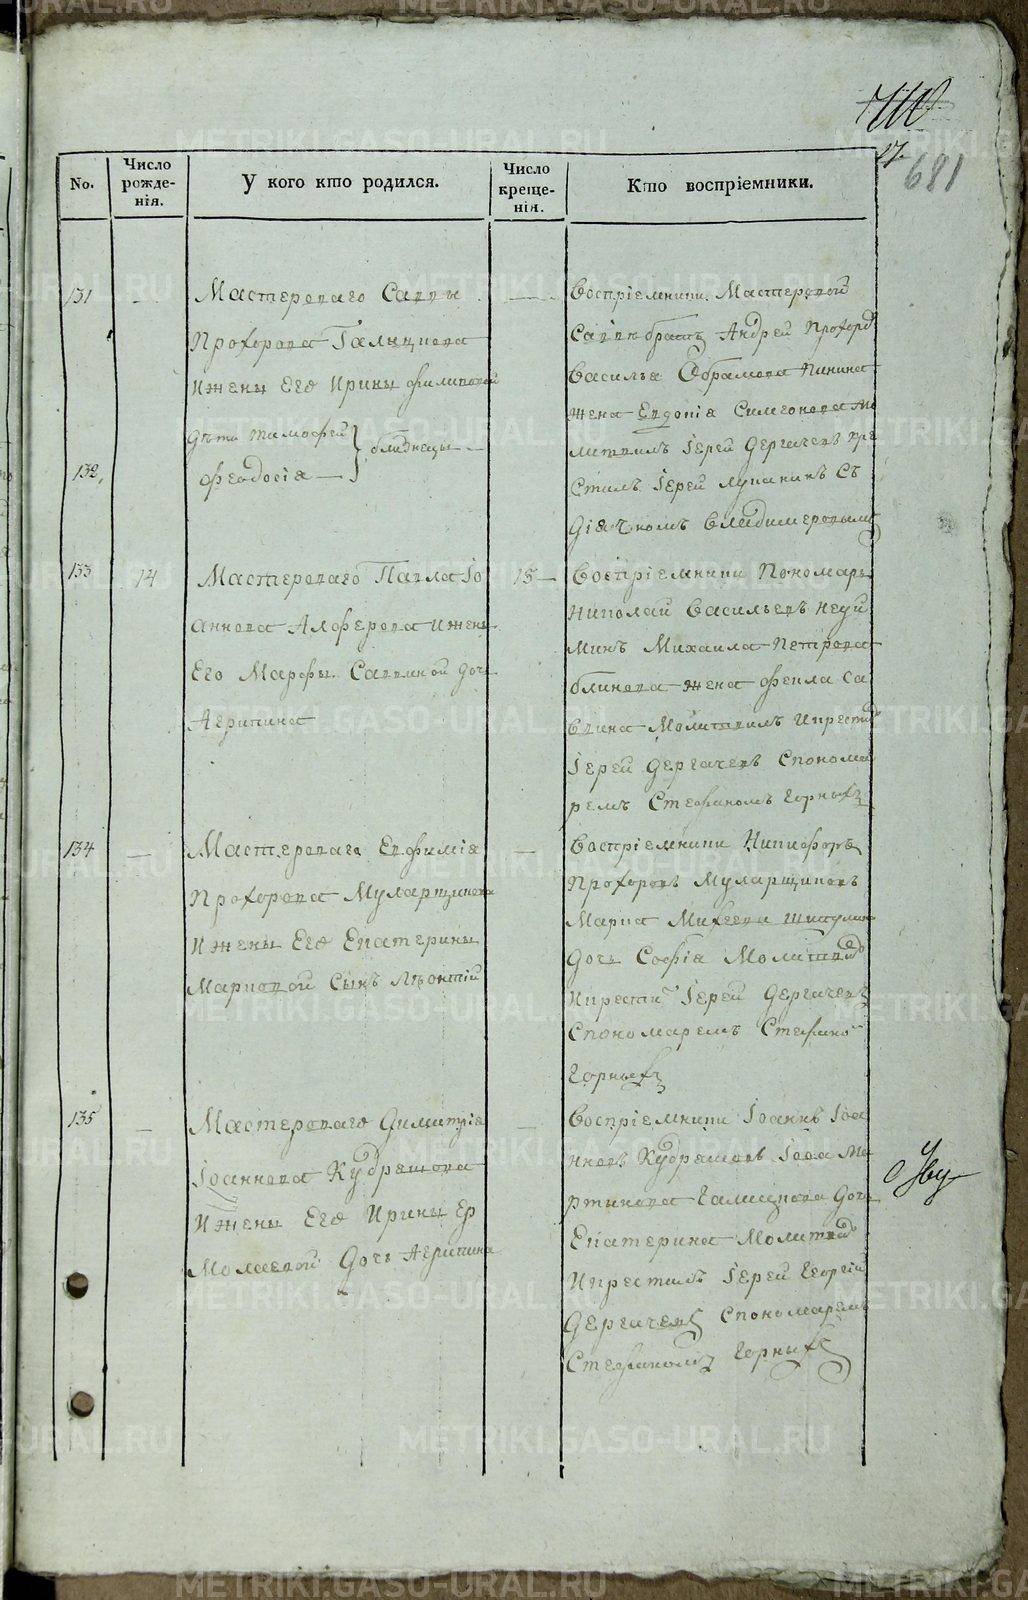 681
No.
Число рожде-нія.
У кого кто родился.
Число креще-нія.
Кто воспріемники.
131
Мастероваго Саввы
Прохорова Галицкова
И жены Его Ирины Филиповой
дети Тимофей
близнецы
132
Феодосія
Воспріемники Мастеровой
Саввы братъ Андрей Прохоро
Василья Абрамова Пинина
жена Евдокія Симеонова Мо
литвилъ Іерей Дергачевъ кре
стилъ Іерей Лукинъ съ
діячкомъ Владимеровымъ
133
14
Мастероваго Павла Іо
аннова Алферова и жены
Его Марфы Саввиной дочь
Агрипина
15
Воспріемники Пономарь
Николай Васильевъ Неуй
минъ Михаила Петрова
блинова жена Фекла Са
ввина Молитвилъ и крести
Іерей Дергачевъ с понома
ремъ Стефаномъ Горныхъ
134
Мастероваго Евфимія
Прохорова Муларщикова
И жены Его Екатерины
Марковой Сынъ Леонтій
Воспріемники Никифоръ
Прохоровъ Муларщиковъ
Марка Михеева
дочь Софія Молитви
и крести Іерей Дергачевъ
с пономаремъ Стефано
Горныхъ
135
Мастероваго Димитрія
Іоаннова Кудрешова
И жены Его Ирины Ер
молаевой дочь Агрипина
Воспріемники Іоаннъ Іоа
нновъ Кудрешовъ Іова Ма
ртинова Галицкова дочь
Екатерина Молитви
и крестилъ Іерей Георгій
Дергачевъ с пономаремъ
Стефаномъ Горныхъ
METRIKI.GASO-URAL.RU